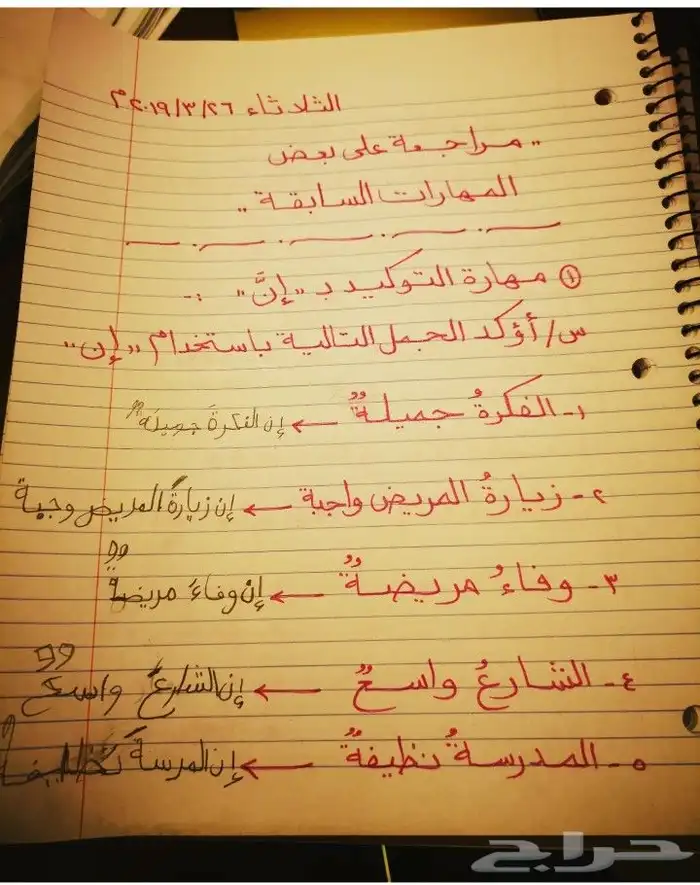 الثلاثاء ٢٠١٩/٣/٢٦م
.. مراجعة على بعض
المهارات السابقة ..
① مهارة التوكيد بـ ,,إنَّ,, :-
س/ أؤكد الجمل التالية باستخدام ,,إن,,
١- الفكرةُ جميلةٌ ← إن الفكرةَ جميلةٌ
٢- زيارةُ المريض واجبة ← إن زيارةَ المريض وجبة
٣- وفاءُ مريضةٌ ← إن وفاءَ مريضةٌ
٤- الشارعُ واسعٌ ← إن الشارعَ واسعٌ
٥- المدرسةُ نظيفةٌ ← إن المرسةَ
حراج